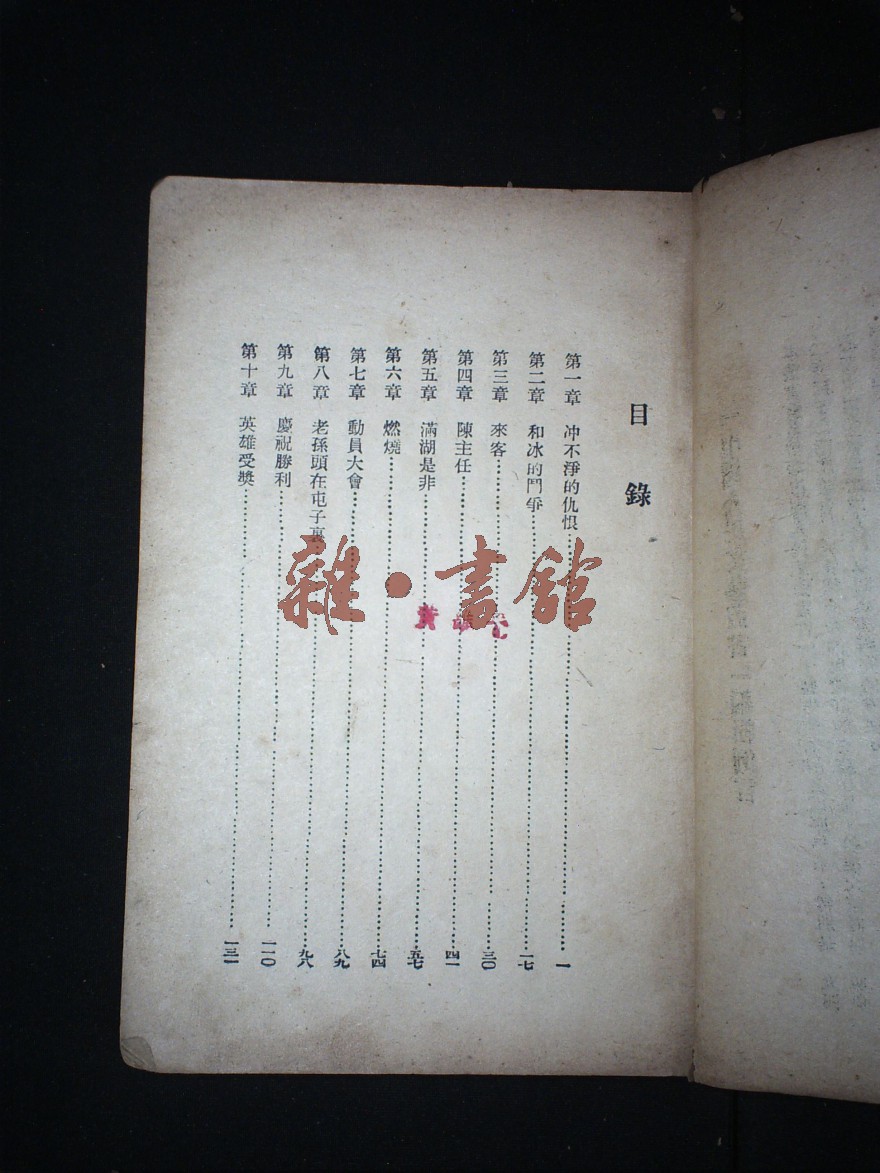 目錄
第一章 冲不淨的仇恨……一
第二章 和冰的鬥爭……一七
第三章 來客……三〇
第四章 陳主任……四一
第五章 滿湖是非……五七
第六章 燃燒……七四
第七章 動員大會……八九
第八章 老孫頭在屯子裏……九八
第九章 慶祝勝利……一一〇
第十章 英雄受獎……一三一
雜·書館
黃